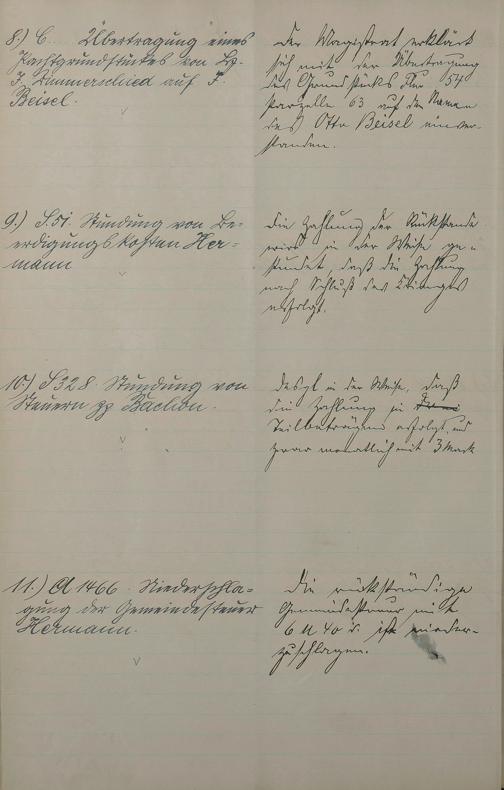 8.) C... Übertragung eines
Pachtgrundstückes von Lz.
J. Dummerschied auf F.
Beisel.
der Magistrat erklärt
sich mit der Übertragung
des Grundstücks Flur 54
Parzelle 63 auf den Namen
des Otto Beisel einver-
standen.
9.) S. 51. Stundung von Be-
erdigungskosten Her-
mann
die Zahlung der Rückstände
wird in der Weise ge-
stundet, daß die Zahlung
nach Schluß des Krieges
erfolgt.
10.) S 328. Stundung von
Steuern pp Bachon.
desgl in der Weise, daß
die Zahlung in
Teilbeträgen erfolgt, und
zwar monatlich mit 3 Mark
11.) A 1466. Niederschla-
gung der Gemeindesteuer
Hermann.
Die rückständige
Gemeindesteuer mit
6 M 40 d. ist nieder-
zuschlagen.